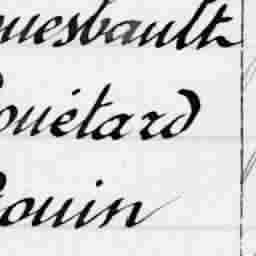 uesbault
ouétard
ouin